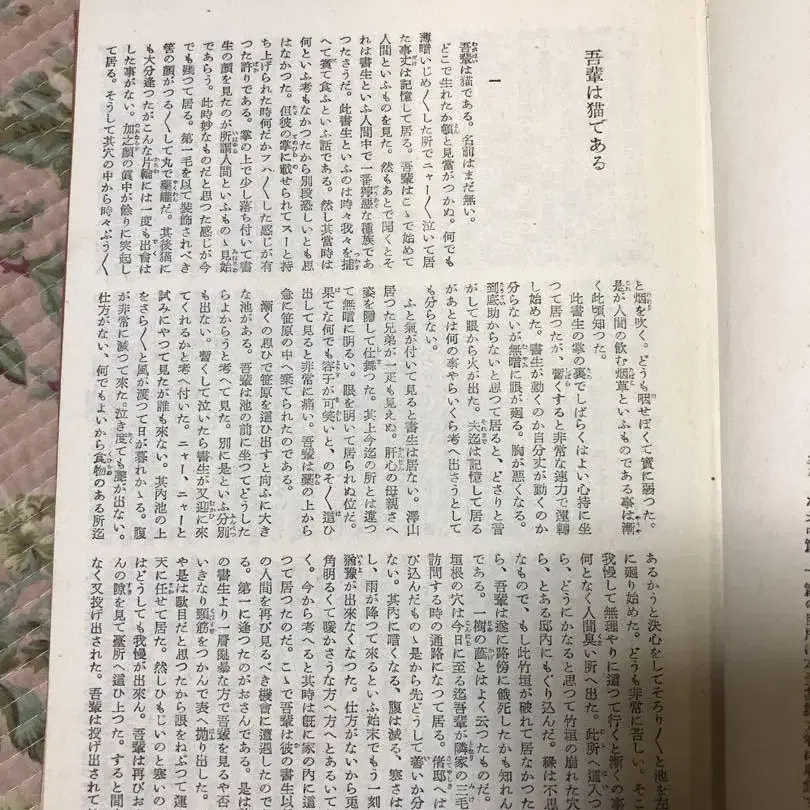 吾輩は猫である
一
吾輩は猫である。名前はまだ無い。
どこで生れたか頓と見當がつかぬ。何でも
薄暗いじめ〳〵した所でニャー〳〵泣いて居
た事丈は記憶して居る。吾輩はこゝで始めて
人間といふものを見た。然もあとで聞くとそ
れは書生といふ人間中で一番獰惡な種族であ
つたさうだ。此書生といふのは時々我々を捕
へて煮て食ふといふ話である。然し其當時は
何といふ考もなかつたから別段恐しいとも思
はなかつた。但彼の掌に載せられてスーと持
ち上げられた時何だかフハ〳〵した感じが有
つた許りである。掌の上で少し落ち付いて書
生の顏を見たのが所謂人間といふものゝ見始
であらう。此時妙なものだと思つた感じが今
でも殘つて居る。第一毛を以て裝飾されべき
筈の顏がつる〳〵して丸で藥罐だ。其後猫に
も大分逢つたがこんな片輪には一度も出會は
した事がない。加之顏の眞中が餘りに突起し
て居る。そうして其穴の中から時々ぷう〳〵
と烟を吹く。どうも咽せぽくて實に弱つた。
是が人間の飲む烟草といふものである事は漸
く此頃知つた。
此書生の掌の裏でしばらくはよい心持に坐
つて居つたが、暫くすると非常な速力で運轉
し始めた。書生が動くのか自分丈が動くのか
分らないが無暗に眼が廻る。胸が惡くなる。
到底助からないと思つて居ると、どさりと音
がして眼から火が出た。夫迄は記憶して居る
があとは何の事やらいくら考へ出さうとして
も分らない。
ふと氣が付いて見ると書生は居ない。澤山
居つた兄弟が一疋も見えぬ。肝心の母親さへ
姿を隱して仕舞つた。其上今迄の所とは違つ
て無暗に明るい。眼を明いて居られぬ位だ。
果てな何でも容子が可笑いと、のそ〳〵這ひ
出して見ると非常に痛い。吾輩は藁の上から
急に笹原の中へ棄てられたのである。
漸くの思ひで笹原を這ひ出すと向ふに大き
な池がある。吾輩は池の前に坐つてどうした
らよからうと考へて見た。別に是といふ分別
も出ない。暫くして泣いたら書生が又迎に來
てくれるかと考へ付いた。ニャー、ニャーと
試みにやつて見たが誰も來ない。其内池の上
をさら〳〵と風が渡つて日が暮れかゝる。腹
が非常に減つて來た。泣き度ても聲が出ない。
仕方がない、何でもよいから食物のある所迄
あるかうと決心をしてそろり〳〵と池を左
に廻り始めた。どうも非常に苦しい。そこ
我慢して無理やりに這つて行くと漸くの事
何となく人間臭い所へ出た。此所へ這入つ
ら、どうにかなると思つて竹垣の崩れた穴
ら、とある邸内にもぐり込んだ。緣は不思
なもので、もし此竹垣が破れて居なかつた
ら、吾輩は遂に路傍に餓死したかも知れん
である。一樹の蔭とはよく云つたものだ。
垣根の穴は今日に至る迄吾輩が隣家の三毛
訪問する時の通路になつて居る。偖邸へは
び込んだものゝ是から先どうして善いか分
ない。其内に暗くなる、腹は減る、寒さは
し、雨が降つて來るといふ始末でもう一刻
猶豫が出來なくなつた。仕方がないから兎
角明るくて暖かさうな方へ方へとあるいて
く。今から考へると其時は既に家の内に這
つて居つたのだ。こゝで吾輩は彼の書生以
の人間を再び見るべき機會に遭遇したので
る。第一に逢つたのがおさんである。是は
の書生より一層亂暴な方で吾輩を見るや否
いきなり頸筋をつかんで表へ抛り出した。
や是は駄目だと思つたから眼をねぶつて運
天に任せて居た。然しひもじいのと寒いの
はどうしても我慢が出來ん。吾輩は再びお
んの隙を見て臺所へ這ひ上つた。すると間
なく又投げ出された。吾輩は投げ出されて